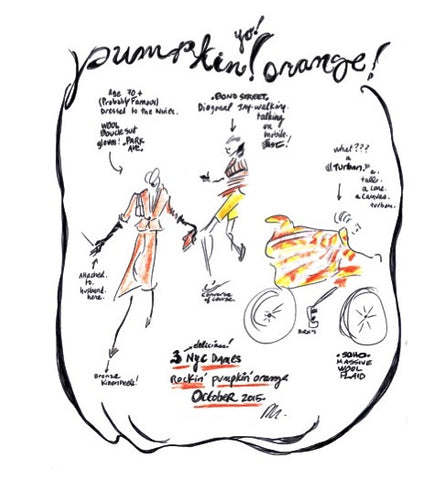 yo!
pumpkin! orange!
Age 70+
(Probably Famous)
Dressed to the Nines.
WOOL
Boucle suit
gloves! .PARK
AVE.
.BOND STREET.
Diagonal Jay-walking.
talking
on
mobile.
what???
a
"Turban."
a.
tulle.
a cone.
a canvas.
turban.
Attached
to
husband
here.
Converse
of course.
Bronze
Kitten heels!
.SOHO.
MASSIVE
WOOL
PLAID
.delicious!
3 NYC DAMES
Rockin' pumpkin' orange
October 2015.